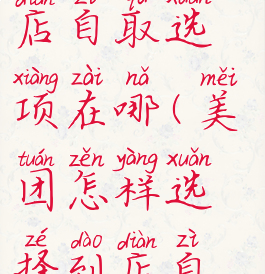 diàn zì qǔ xuǎn
店自取选
xiàng zài nǎ měi
项在哪(美
tuán zěn yàng xuǎn
团怎样选
zé dào diàn zì
择到店自